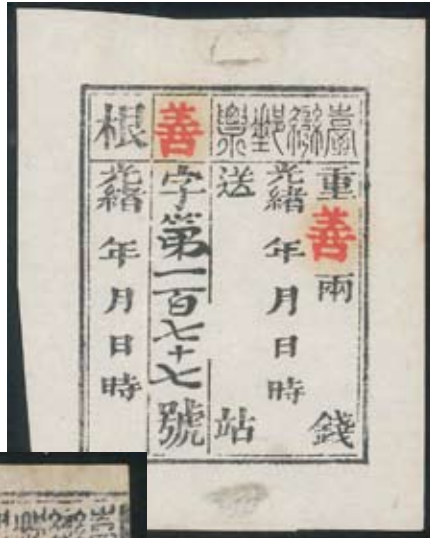 臺灣郵票
重善兩錢
光緒年月日時
送站
善字第一百七十七號
根
光緒年月日時